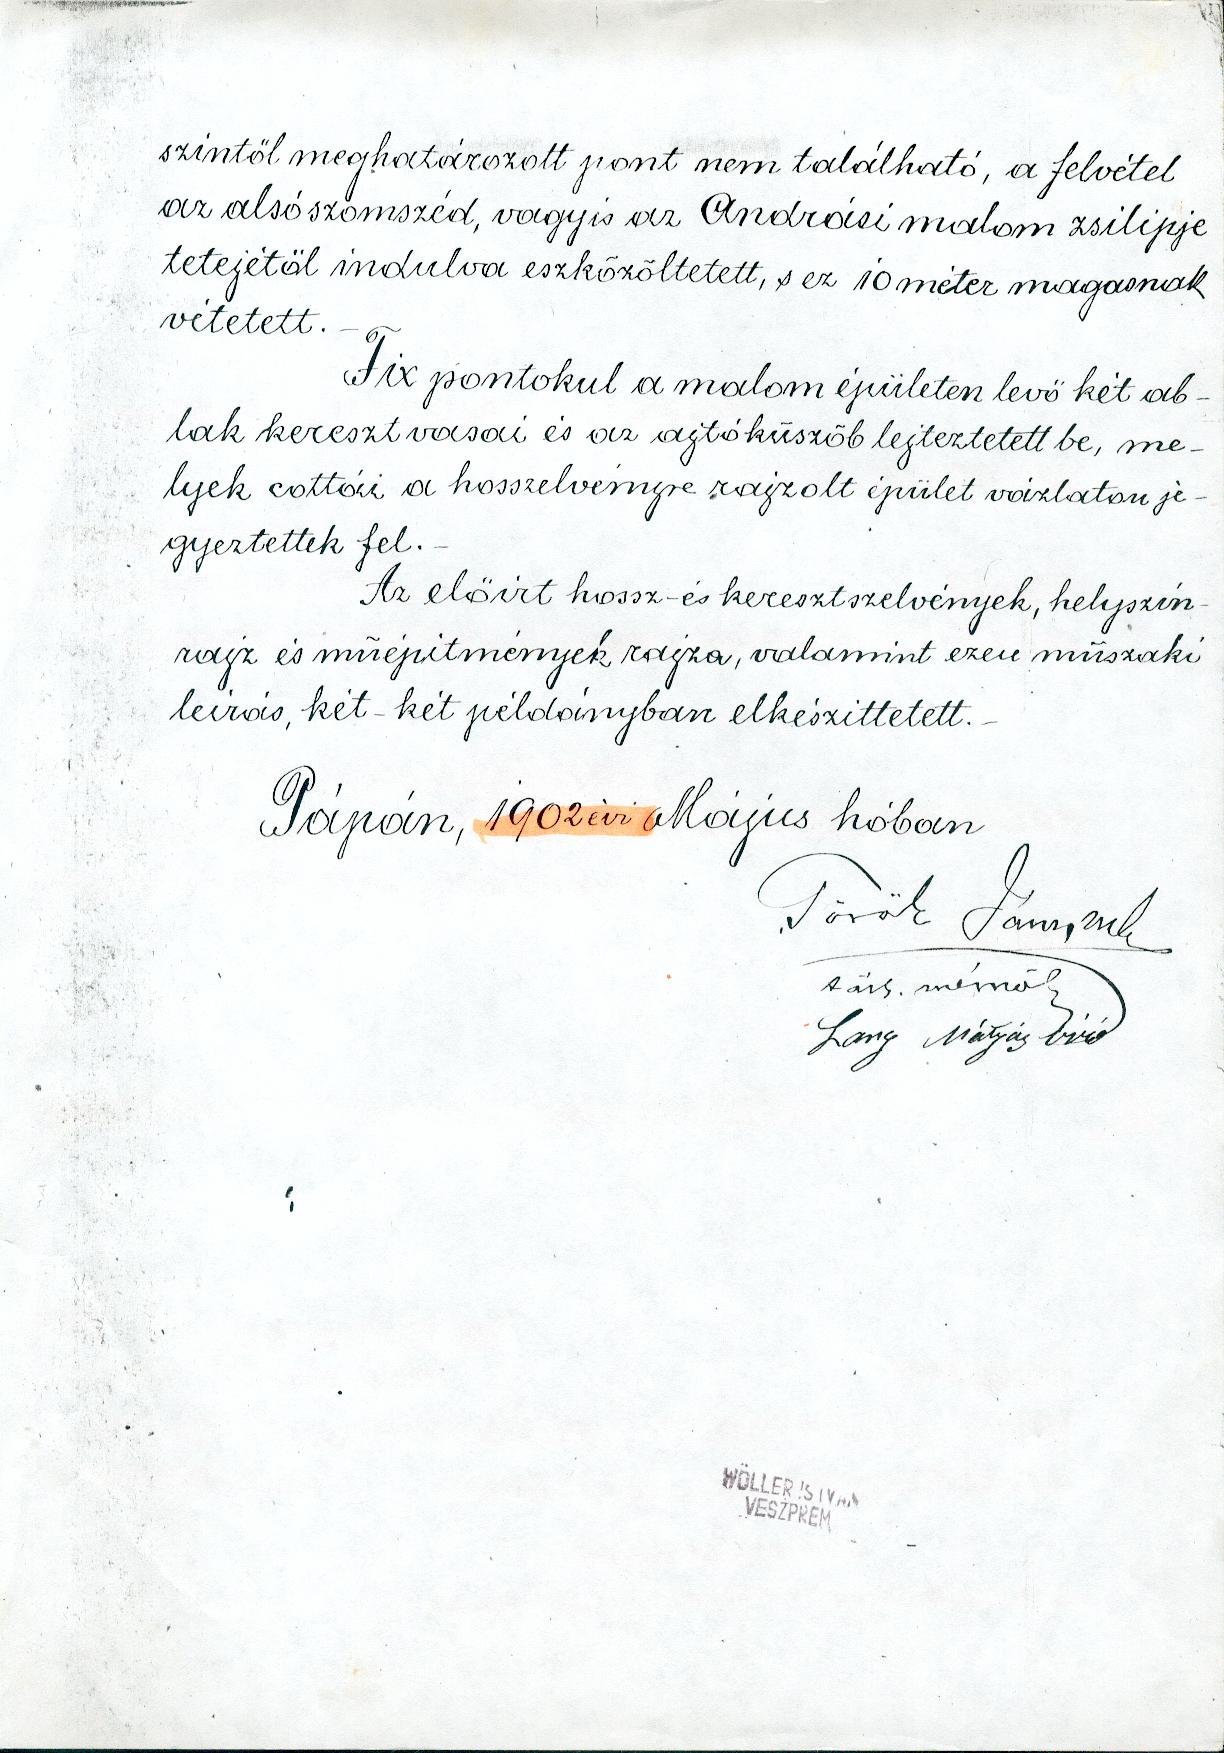 szintől meghatározott pont nem található, a felvétel
az alsó szomszéd, vagyis az Andrási malom zsilipje
tetejétől indulva eszközöltetett, s ez 10 méter magasnak
vétetett. –
Fix pontokul a malom épületen levő két ab-
lak kereszt vasai és az ajtóküszöb lejteztetett be, me-
lyek cottái a hosszelvényre rajzolt épület vázlaton je-
gyeztettek fel. –
Az előirt hossz- és keresztszelvények, helyszin-
rajz és műépitmények rajza, valamint ezen műszaki
leirás, két-két példányban elkészittetett. –
Pápán, 1902 évi Május hóban
Török
mérnök
Lang Mátyás biró
WÖLLER
VESZPREM